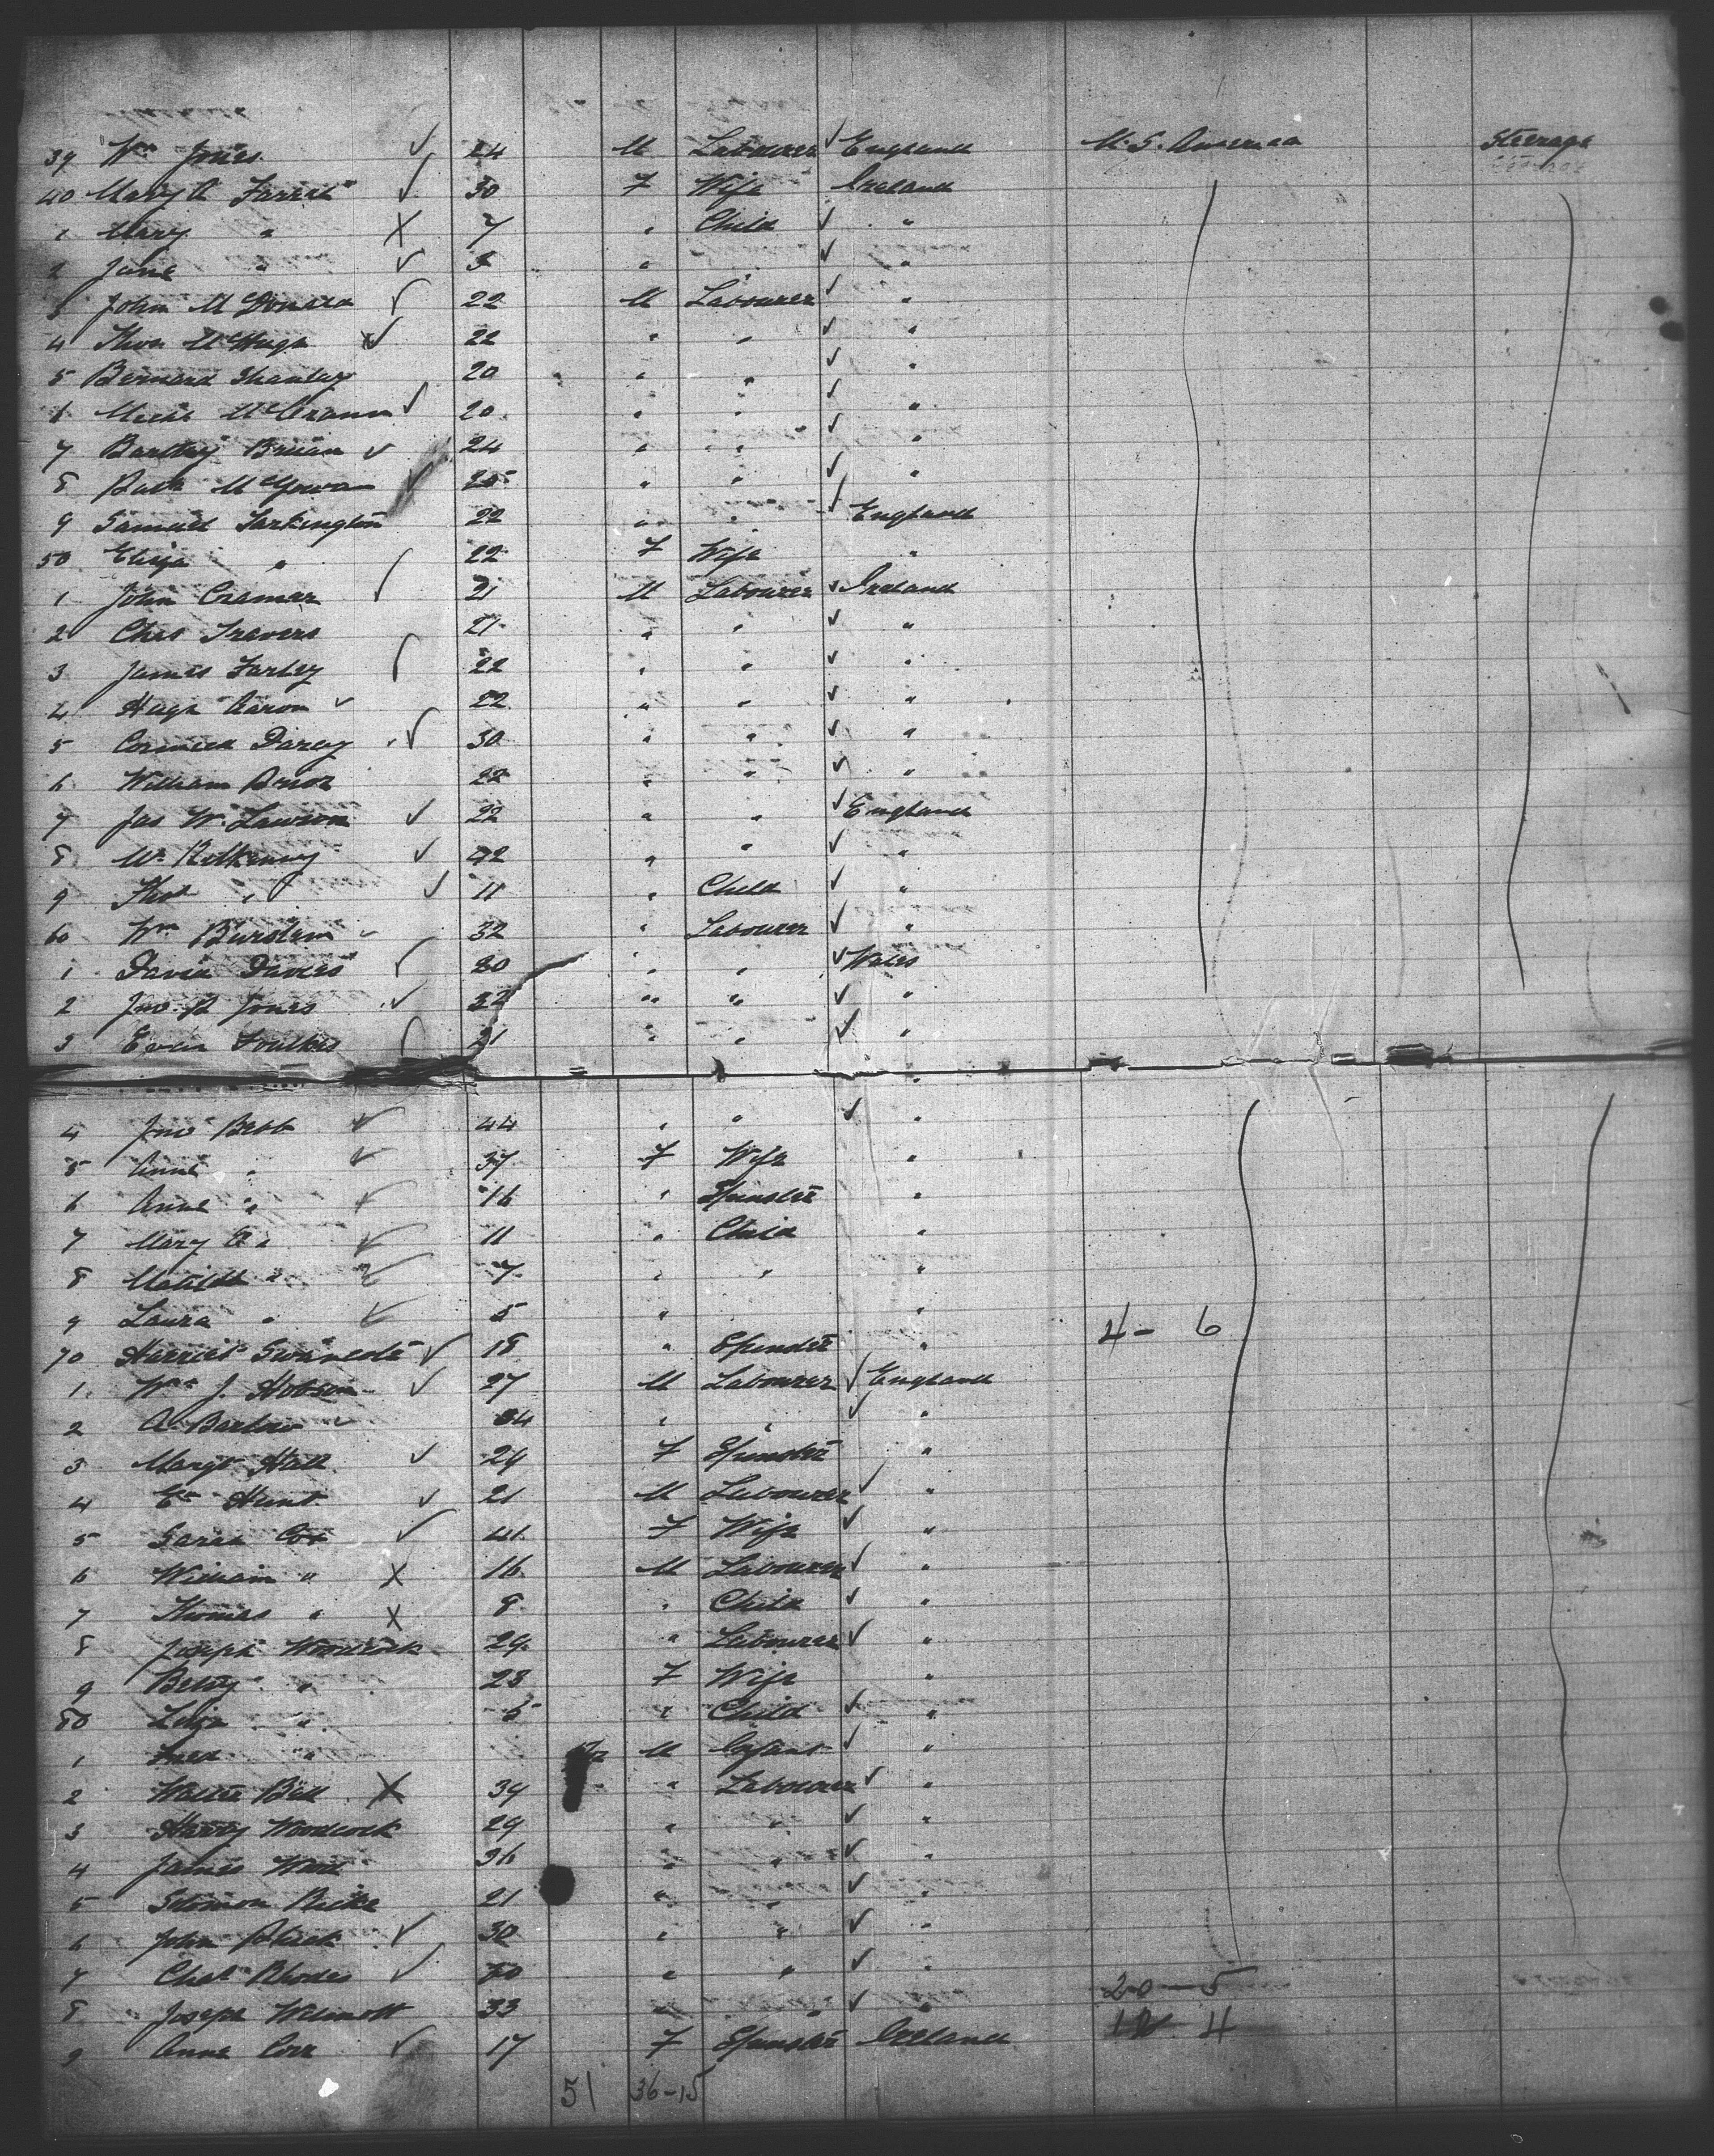 39 Wm Jones 24 M Labourer England U.S. America Steerage
40 Mary A 30 F Wife Ireland
1 Mary " 7 " Child "
2 Jane " 3 " "
3 John McDonald 22 M Labourer "
4 Thos McHugh 22 " " "
5 Bernard Shanley 20 " " "
6 20 " " "
7 Bartley 24 " " "
8 Patk McGowan 25 " " "
9 Samuel 22 " " England
50 Eliza " 22 F Wife "
1 John Cramer 21 M Labourer Ireland
2 Chas Travers 21 " " "
3 James Farley 22 " " "
4 Hugh Aaron 22 " " "
5 Darcy 30 " " "
6 William 22 " " "
7 Jas W. Lawson 22 " " England
8 Wm 42 " " "
9 Thos " 11 " Child "
60 Wm 32 " Labourer "
1 David Davies 20 " " Wales
2 Jno. R Jones 22 " " "
3 Evan Foulkes 21 " " "
4 Jno Bebb 44 " " "
5 Anne " 37 F Wife "
6 Anne " 16 " Spinster "
7 Mary E " 11 " Child "
8 Matilda " 7 " " "
9 Laura " 5 " "
4 - 6
70 Harriet 18 " Spinster "
1 Wm J. Hobson 27 M Labourer England
2 A. Barlow " " "
3 Margt Hall 29 F Spinster "
4 Hunt 21 M Labourer "
5 Sarah Cox 41 F Wife "
6 William " 16 M Labourer "
7 Thomas " 8 " Child "
8 Joseph Woodcock 29 " Labourer "
9 Betsy " 28 F Wife "
80 " 5 " Child "
1 Fred " M Infant "
2 Walter Bell 39 " Labourer "
3 Harry Woodcock 29 " " "
4 James Wood 36 " " "
5 Solomon 21 " " "
6 John 30 " " "
7 Chas Rhodes " " "
20 - 5
8 Joseph Wilmott 33 " " "
4
9 Anne 17 F Spinster Ireland
51 36-15